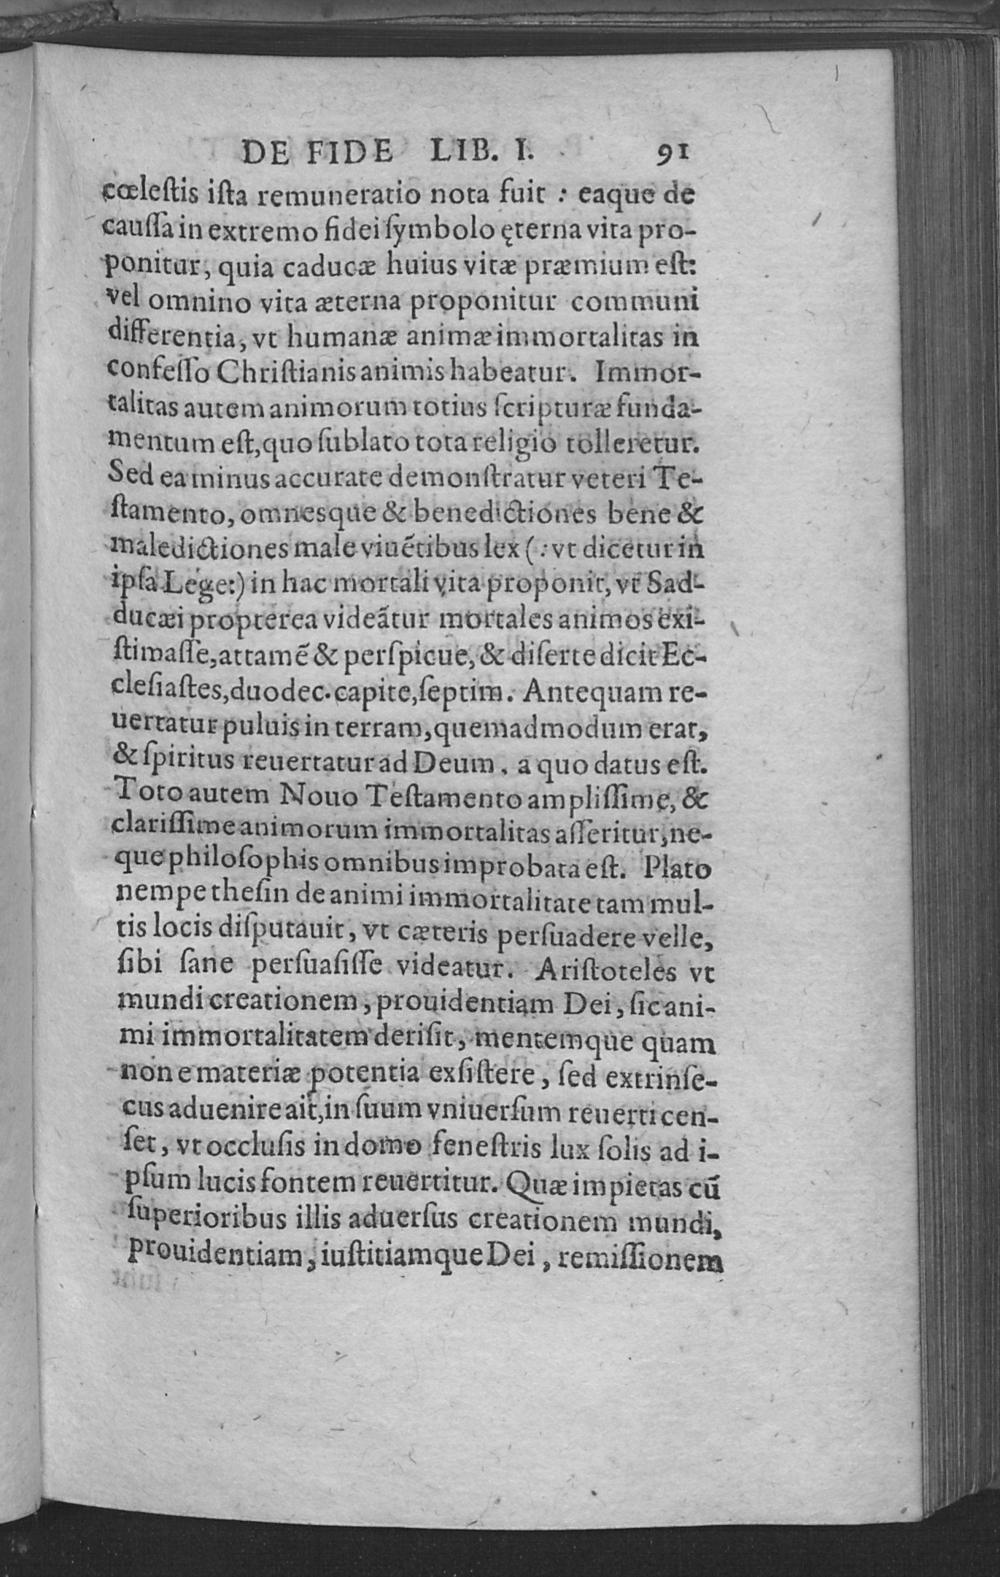 DE FIDE LIB. I. 91
cœleſtis iſta remuneratio nota fuit : eaque de
cauſſa in extremo fidei ſymbolo ęterna vita pro-
ponitur, quia caducæ huius vitæ præmium eſt:
vel omnino vita æterna proponitur communi
differentia, vt humanæ animæ immortalitas in
confeſſo Chriſtianis animis habeatur. Immor-
talitas autem animorum totius ſcripturæ funda-
mentum eſt, quo ſublato tota religio tolleretur.
Sed ea minus accurate demonſtratur veteri Te-
ſtamento, omnesque & benedictiones bene &
maledictiones male viuẽtibus lex (: vt dicetur in
ipſa Lege:) in hac mortali vita proponit, vt Sad-
ducæi propterea videãtur mortales animos exi-
ſtimaſſe, attamẽ & perſpicue, & diſerte dicit Ec-
cleſiaſtes, duodec. capite, ſeptim. Antequam re-
uertatur puluis in terram, quemadmodum erat,
& ſpiritus reuertatur ad Deum, a quo datus eſt.
Toto autem Nouo Teſtamento ampliſſime, &
clariſſime animorum immortalitas aſſeritur, ne-
que philoſophis omnibus improbata eſt. Plato
nempe theſin de animi immortalitate tam mul-
tis locis diſputauit, vt cæteris perſuadere velle,
ſibi ſane perſuaſiſſe videatur. Ariſtoteles vt
mundi creationem, prouidentiam Dei, ſic ani-
mi immortalitatem deriſit, mentemque quam
non e materiæ potentia exſiſtere, ſed extrinſe-
cus aduenire ait, in ſuum vniuerſum reuerti cen-
ſet, vt occluſis in domo feneſtris lux ſolis ad i-
pſum lucis fontem reuertitur. Quæ impietas cũ
ſuperioribus illis aduerſus creationem mundi,
prouidentiam, iuſtitiamque Dei, remiſſionem